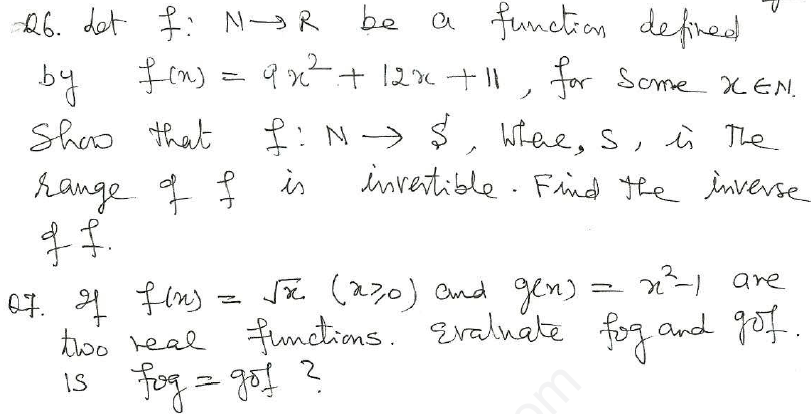 Q6. Let f: N→R be a function defined
by f(x) = 9x² + 12x + 11, for some x∈N.
Show that f: N → S, Where, S, is The
range of f is invertible. Find the inverse
of f.
Q7. If f(x) = √x (x≥0) and g(x) = x²-1 are
two real functions. Evaluate fog and gof.
is fog = gof ?
om